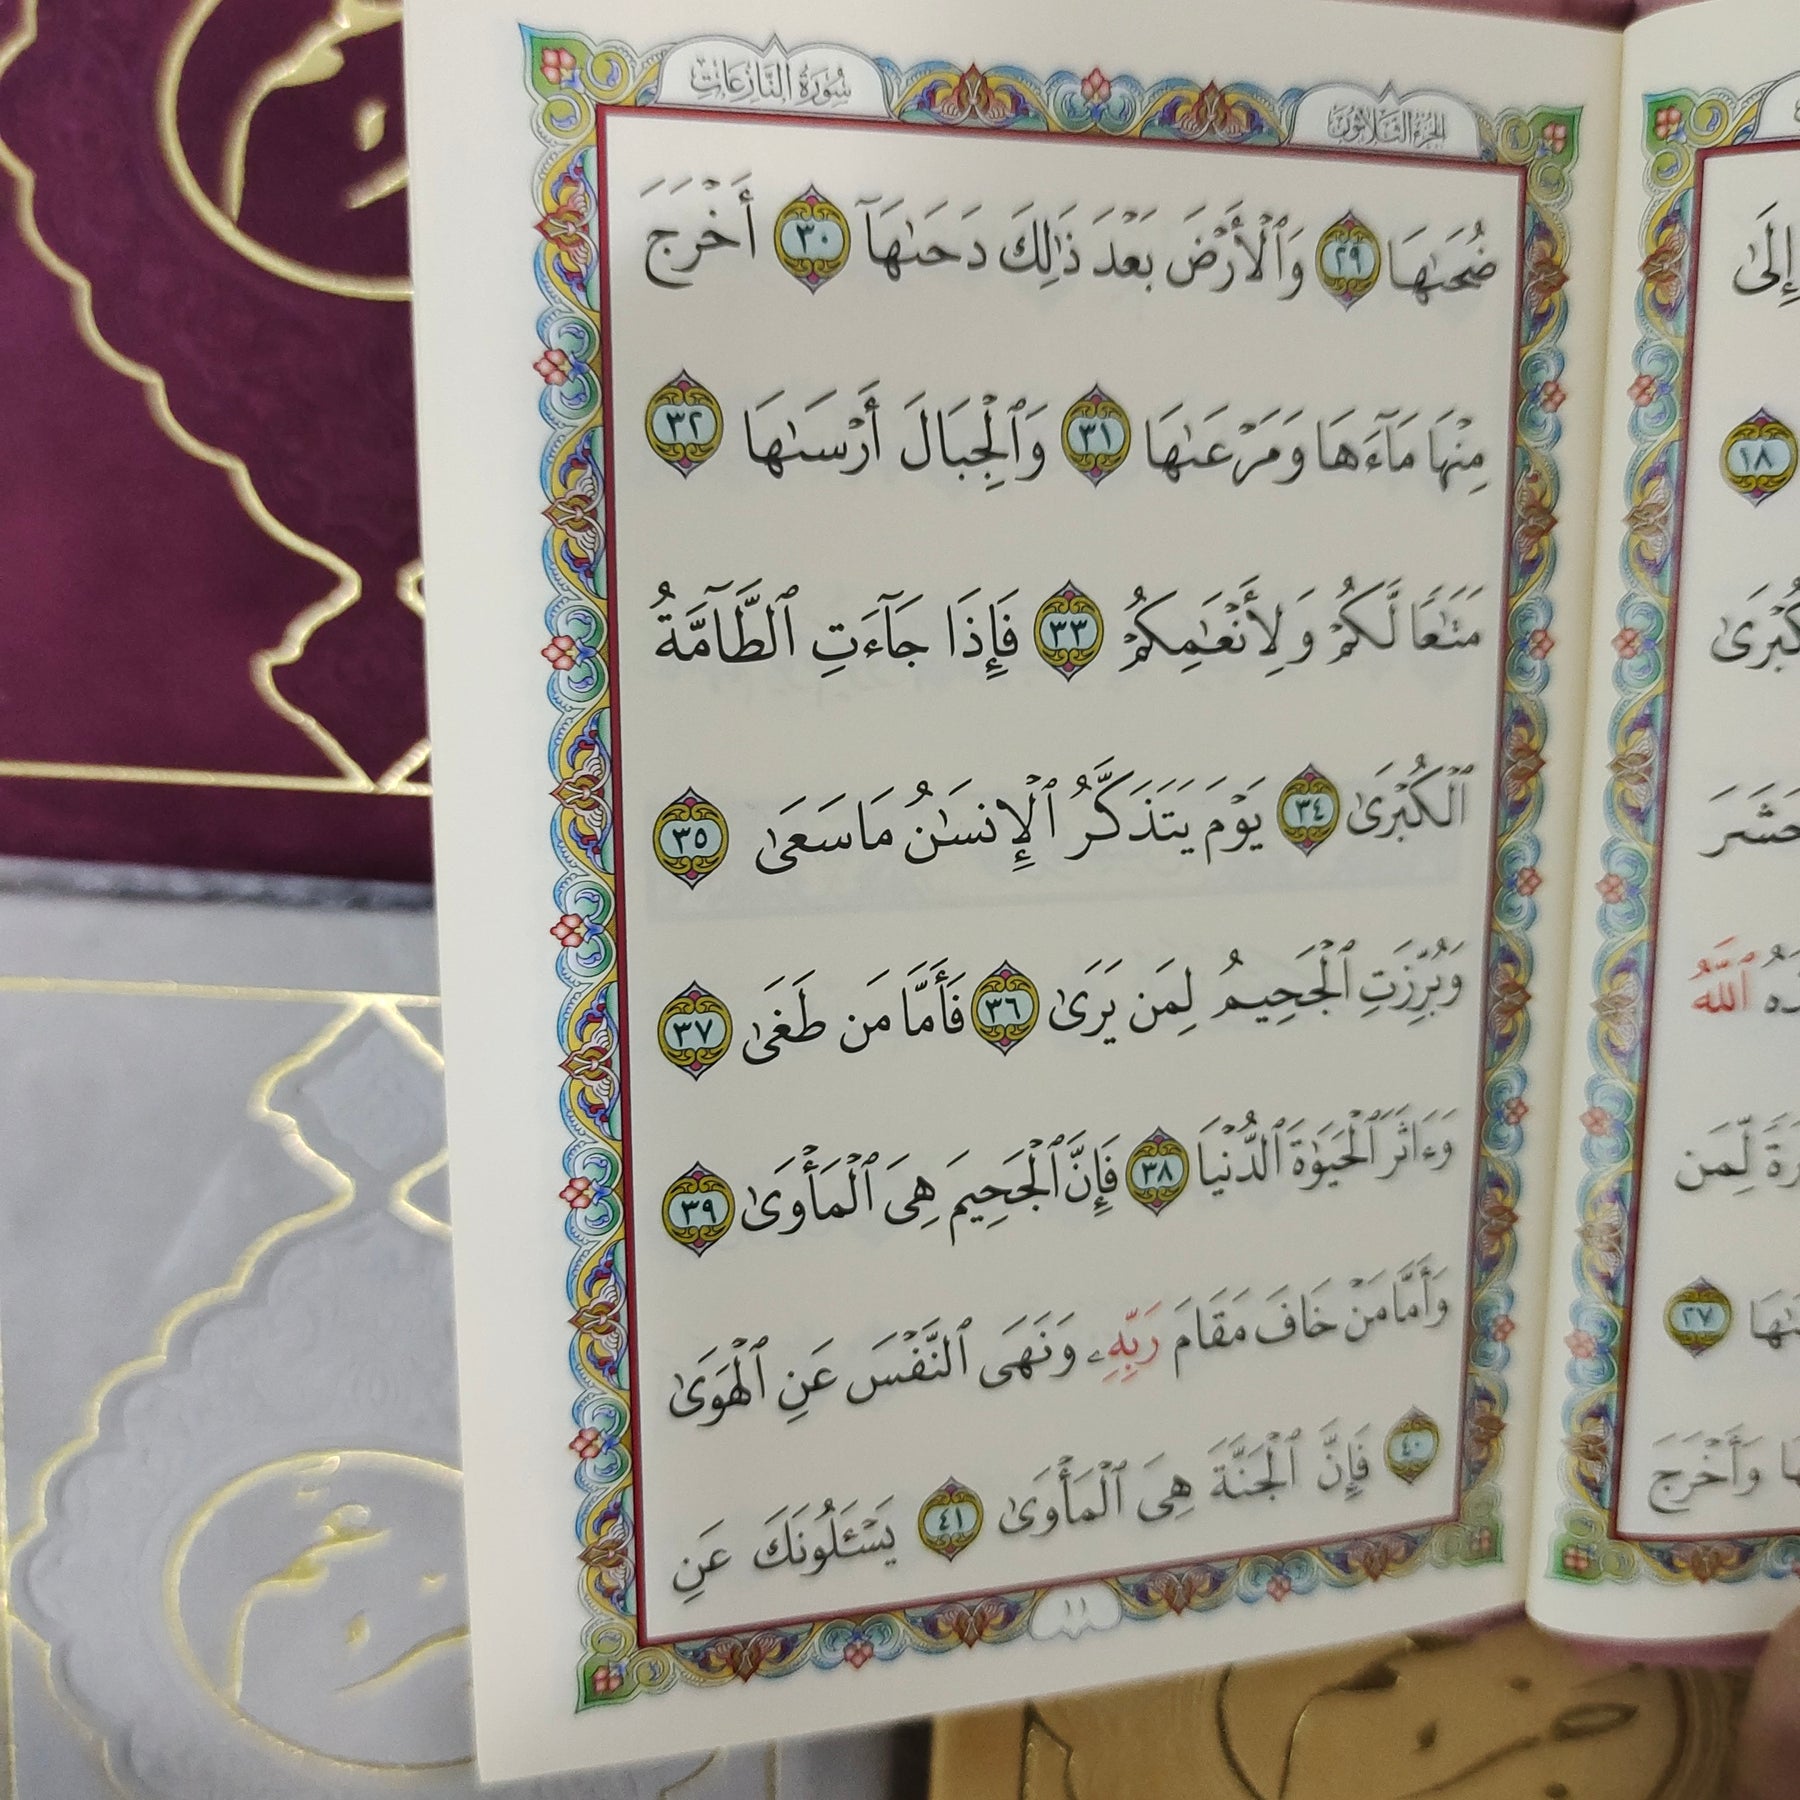 الجزء الثلاثون
سورة النازعات
ضُحَىٰهَا ٢٩ وَٱلْأَرْضَ بَعْدَ ذَٰلِكَ دَحَىٰهَآ ٣٠ أَخْرَجَ
مِنْهَا مَآءَهَا وَمَرْعَىٰهَا ٣١ وَٱلْجِبَالَ أَرْسَىٰهَا ٣٢
مَتَـٰعًا لَّكُمْ وَلِأَنْعَـٰمِكُمْ ٣٣ فَإِذَا جَآءَتِ ٱلطَّآمَّةُ
ٱلْكُبْرَىٰ ٣٤ يَوْمَ يَتَذَكَّرُ ٱلْإِنسَـٰنُ مَا سَعَىٰ ٣٥
وَبُرِّزَتِ ٱلْجَحِيمُ لِمَن يَرَىٰ ٣٦ فَأَمَّا مَن طَغَىٰ ٣٧
وَءَاثَرَ ٱلْحَيَوٰةَ ٱلدُّنْيَا ٣٨ فَإِنَّ ٱلْجَحِيمَ هِىَ ٱلْمَأْوَىٰ ٣٩
وَأَمَّا مَنْ خَافَ مَقَامَ رَبِّهِۦ وَنَهَى ٱلنَّفْسَ عَنِ ٱلْهَوَىٰ
٤٠ فَإِنَّ ٱلْجَنَّةَ هِىَ ٱلْمَأْوَىٰ ٤١ يَسْـَٔلُونَكَ عَنِ
١١
إِلَىٰ
١٨
ٱللَّهُ
لِّمَن
٢٧
وَأَخْرَجَ